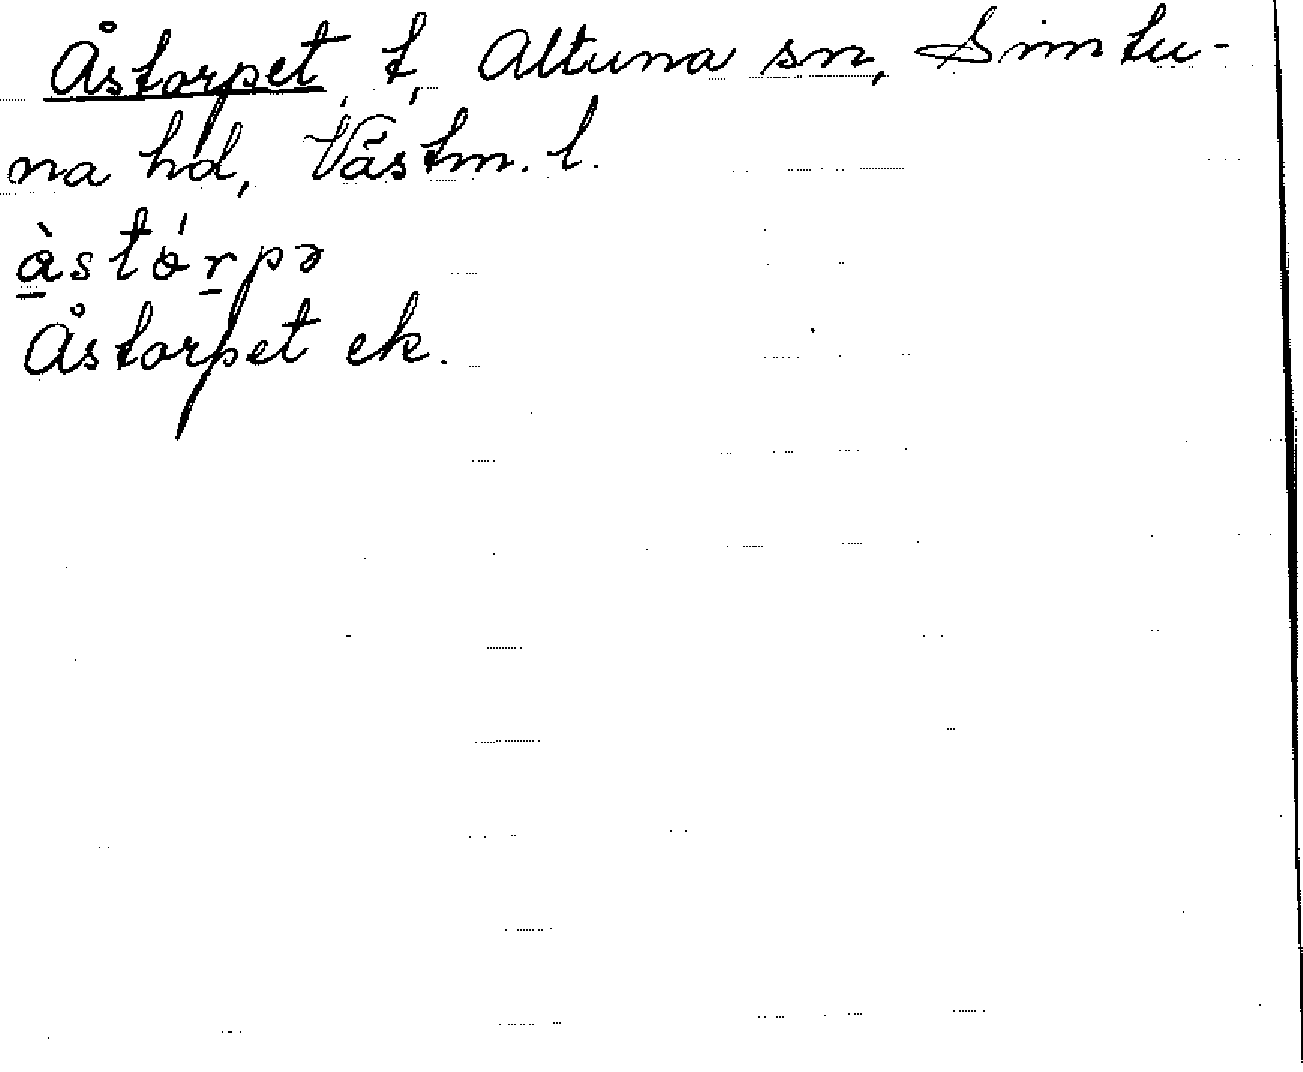 Åstorpet, t, Altuna sn, Simtu-
na hd, Västm. l.
àstǿrpə
Åstorpet ek.